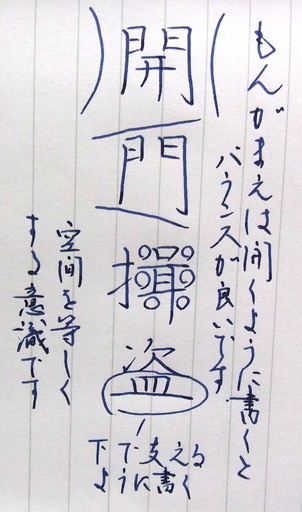 もんがまえは開くように書くと
バランスが良いです
開
門
盗
下で支える
ように書く
空間を等しく
する意識です